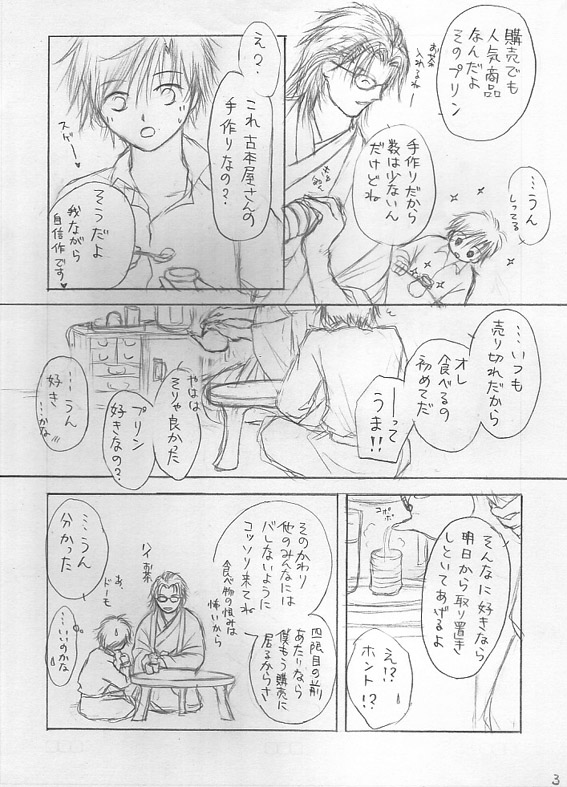 購売でも
人気商品
なんだよ
そのプリン
お茶
入れるね
手作りだから
数は少ないん
だけどね
…うん
しってる
え？
これ古本屋さんの
手作りなの？
スゲー
そうだよ
我ながら
自信作です♥
…いつも
売り切れだから
オレ
食べるの
初めてだ
ーって
うま!!
やはは
そりゃ良かった
プリン
好きなの？
…うん
好き
…かな
コポポ
そんなに好きなら
明日から取り置き
しといてあげるよ
え!?
ホント!?
そのかわり
他のみんなには
バレないように
コッソリ来てね
食べ物の恨みは
怖いから
四限目の前
あたりなら
僕もう購売に
居るからさ
ハイ お茶
…うん
分かった
あ、
ドーモ
…いいのかな
3